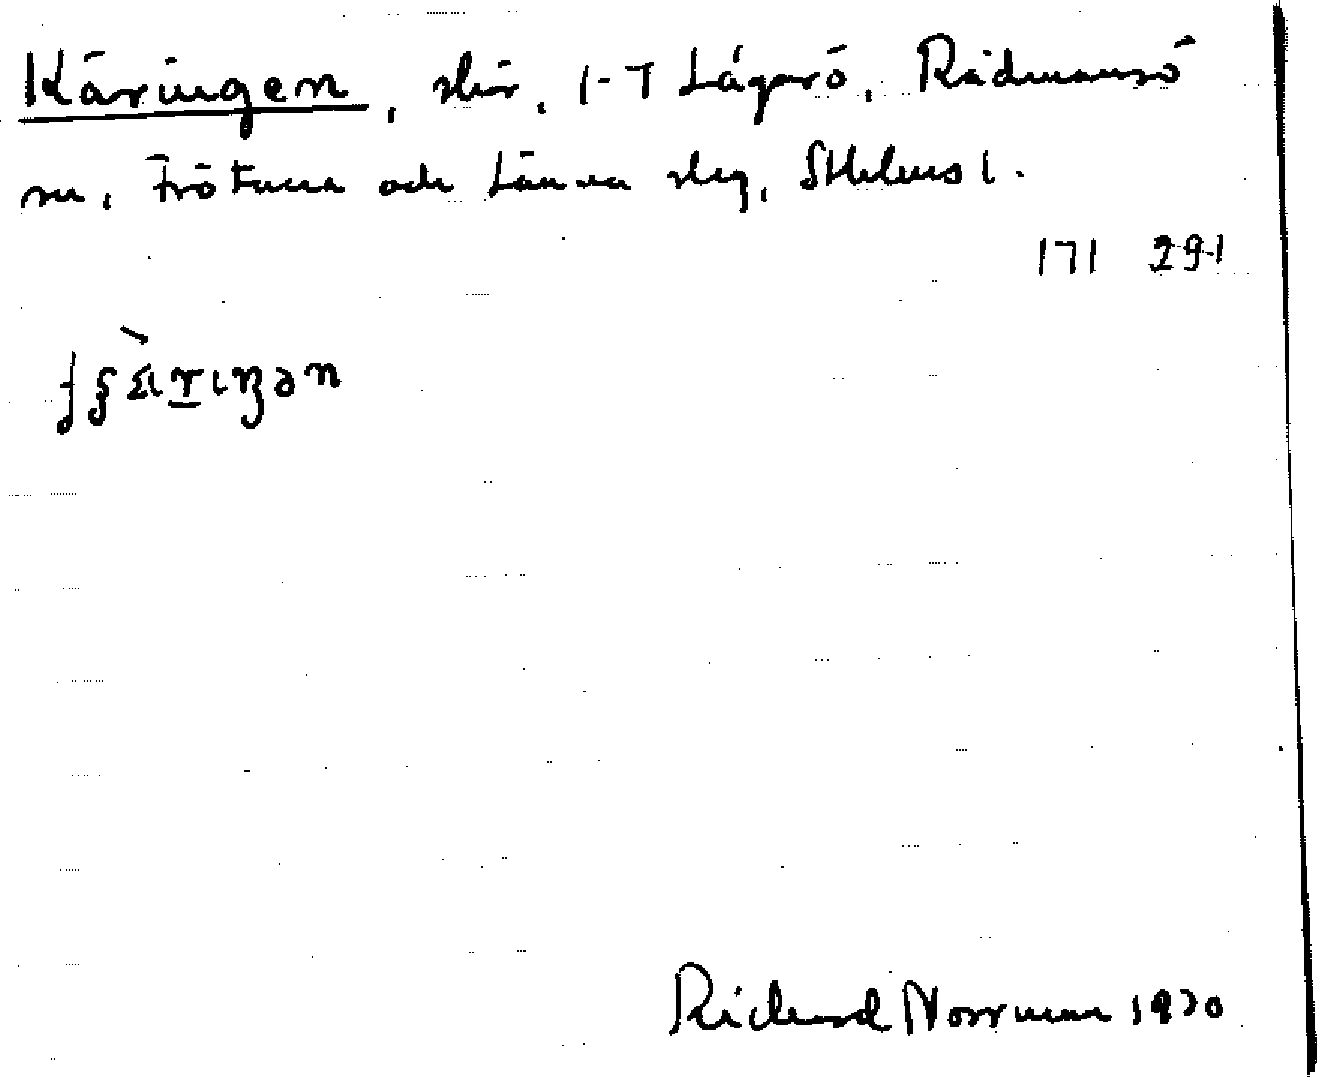 Käringen, skär, 1-7 Lågarö, Rådmansö
sn, Frötuna och Länna slg, Sthlms l.
171 291
Richard Norrman 1930